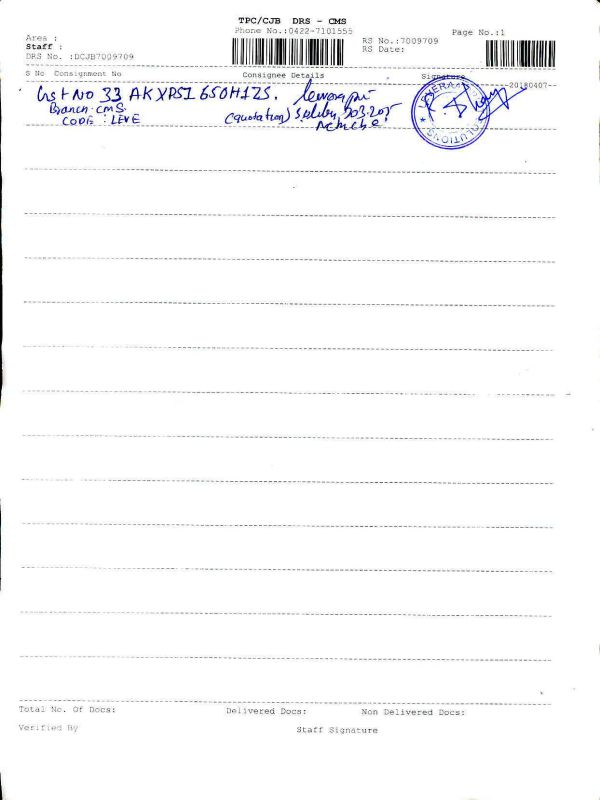 TPC/CJB DRS - CMS
Phone No.:0422-7101555
Page No.:1
Area :
Staff :
DRS No. :DCJB7009709
RS No.:7009709
RS Date:
S No Consignment No Consignee Details Signature
20180407
Gst No 33 AKXPS1650H1ZS.
Branch: CMS.
CODE : LEVE
(quotation)
SOLUTIONS
Total No. Of Docs: Delivered Docs: Non Delivered Docs:
Verified By Staff Signature